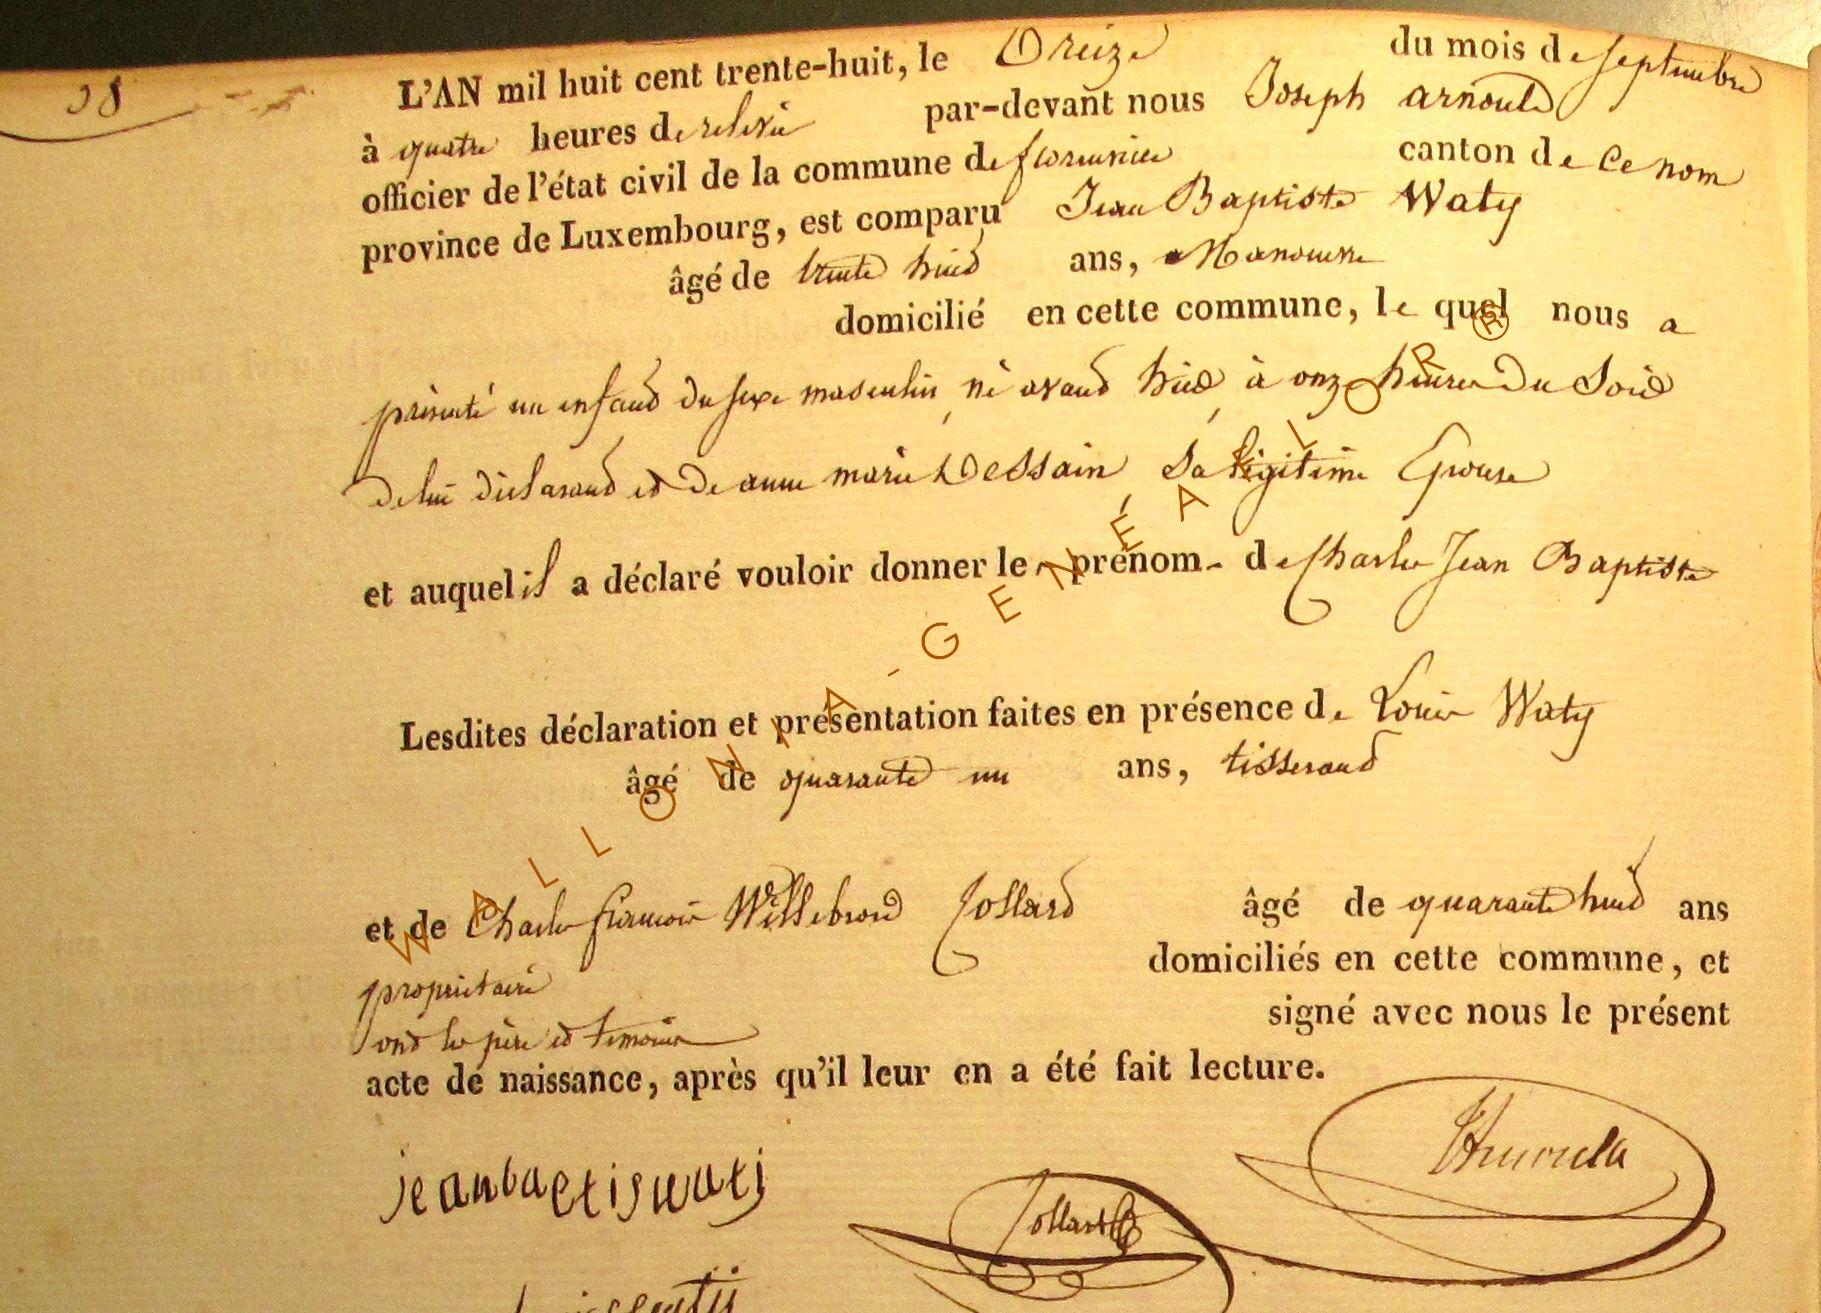 38
L'AN mil huit cent trente-huit, le Treize du mois de septembre
à quatre heures de relevée par-devant nous Joseph arnould
officier de l'état civil de la commune de florenville canton de Ce nom
province de Luxembourg, est comparu Jean Baptiste Waty
âgé de trente huit ans, Manouvre
domicilié en cette commune, le quel nous a
présenté un enfant du sexe masculin, né avant hier, à onze heures du Soir
de lui déclarant et de anne marie Dessain, Sa légitime Epouse
et auquel il a déclaré vouloir donner le prénom de Charles Jean Baptiste
Lesdites déclaration et présentation faites en présence de Louis Waty
âgé de quarante un ans, tisserand
et de Charles francois Willebrord Jollard âgé de quarante huit ans
propriétaire domiciliés en cette commune, et
ont les père et témoins signé avec nous le présent
acte de naissance, après qu'il leur en a été fait lecture.
jeanbaetiswati
Jollard
WALLONIA-GENEALOR®